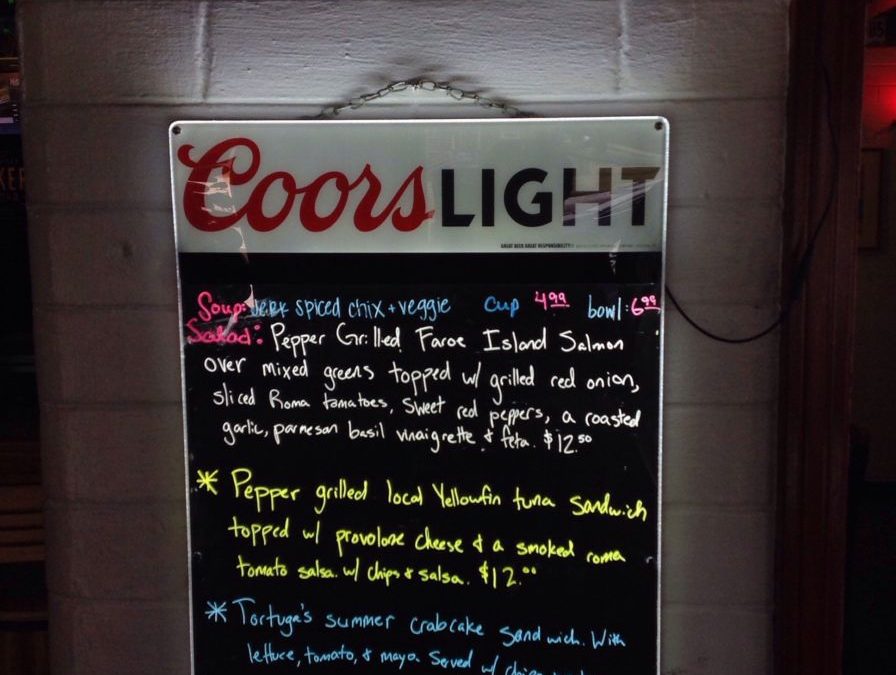 Coors LIGHT
GREAT BEER GREAT RESPONSIBILITY
Soup: Jerk spiced chix + veggie cup 4.99 bowl: 6.99
Salad: Pepper Grilled Faroe Island Salmon
over mixed greens topped w/ grilled red onion,
sliced Roma tomatoes, Sweet red peppers, a roasted
garlic, parmesan basil vinaigrette & feta. $12.50
* Pepper grilled local Yellowfin tuna sandwich
topped w/ provolone cheese & a smoked roma
tomato salsa. w/ chips & salsa. $12.00
* Tortuga's summer crabcake sandwich. With
lettuce, tomato, & mayo. Served w/